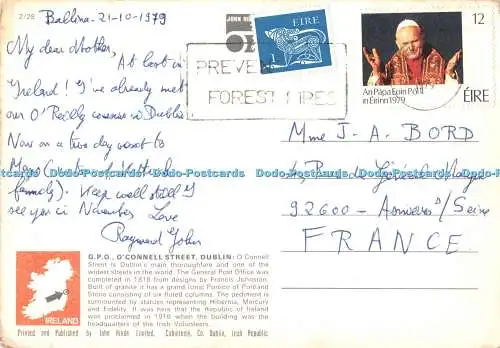 2/28
Ballina - 21-10-1979
My dear Mother,
At last in
Ireland! I've already met
our O'Reilly cousins in Dublin.
Now on a two day visit to
Mayo
family). Keep well still I
see you in November. Love
Raymond John
JOHN HINDE
PREVENT
FOREST FIRES
ÉIRE
1
12
An Pápa Eoin Pól II
in Éirinn 1979
ÉIRE
Mme J-A. BORD
4, Rue du
92600 - Asnières s/Seine
FRANCE
G.P.O., O'CONNELL STREET, DUBLIN: O'Connell
Street is Dublin's main thoroughfare and one of the
widest streets in the world. The General Post Office was
completed in 1818 from designs by Francis Johnston.
Built of granite it has a grand Ionic Portico of Portland
Stone consisting of six fluted columns. The pediment is
surmounted by statues representing Hibernia, Mercury
and Fidelity. It was here that the Republic of Ireland
was proclaimed in 1916 when the building was the
headquarters of the Irish Volunteers.
IRELAND
Printed and Published by John Hinde Limited, Cabinteely, Co. Dublin, Irish Republic.
www.postcards-Wale.com